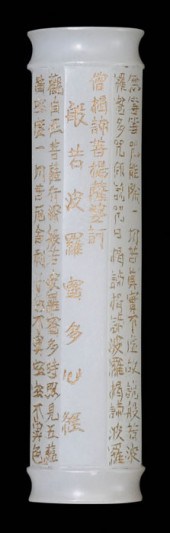 無等等咒能除一切苦真實不虛故說般若波
羅蜜多咒即說咒曰揭諦揭諦波羅揭諦波羅
僧揭諦菩提薩婆訶
般若波羅蜜多心經
觀自在菩薩行深般若波羅蜜多時照見五蘊
皆空度一切苦厄舍利子色不異空空不異色